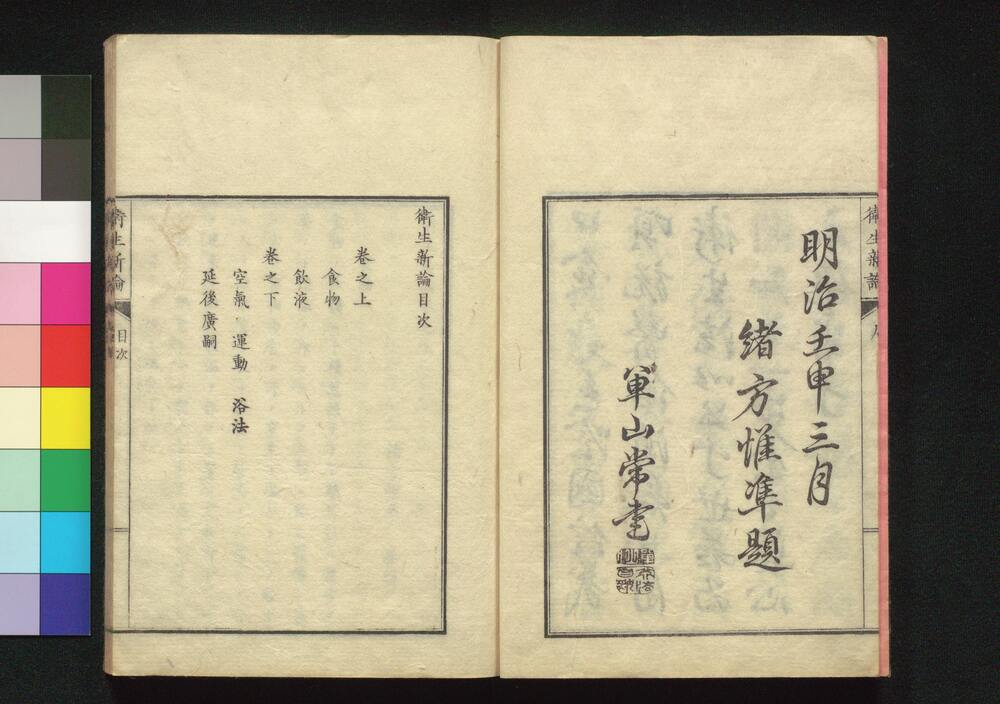 衛生新論
明治壬申三月
緒方惟準題
軍山常書
衛生新論目次
巻之上
食物
飲液
巻之下
空氣 運動 浴法
延後廣嗣
衛生新論
目次